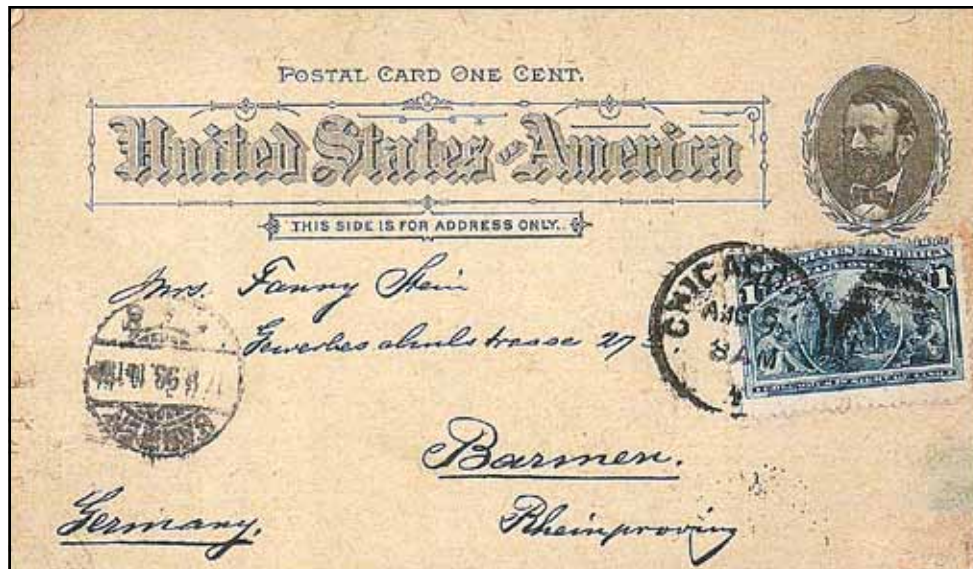 POSTAL CARD ONE CENT.
United States of America
THIS SIDE IS FOR ADDRESS ONLY.
Mrs. Fanny Stein
Gewerbeschulstrasse 27
Barmen.
Rheinprovinz
Germany.
CHICAGO
AUG
8 AM
1
1